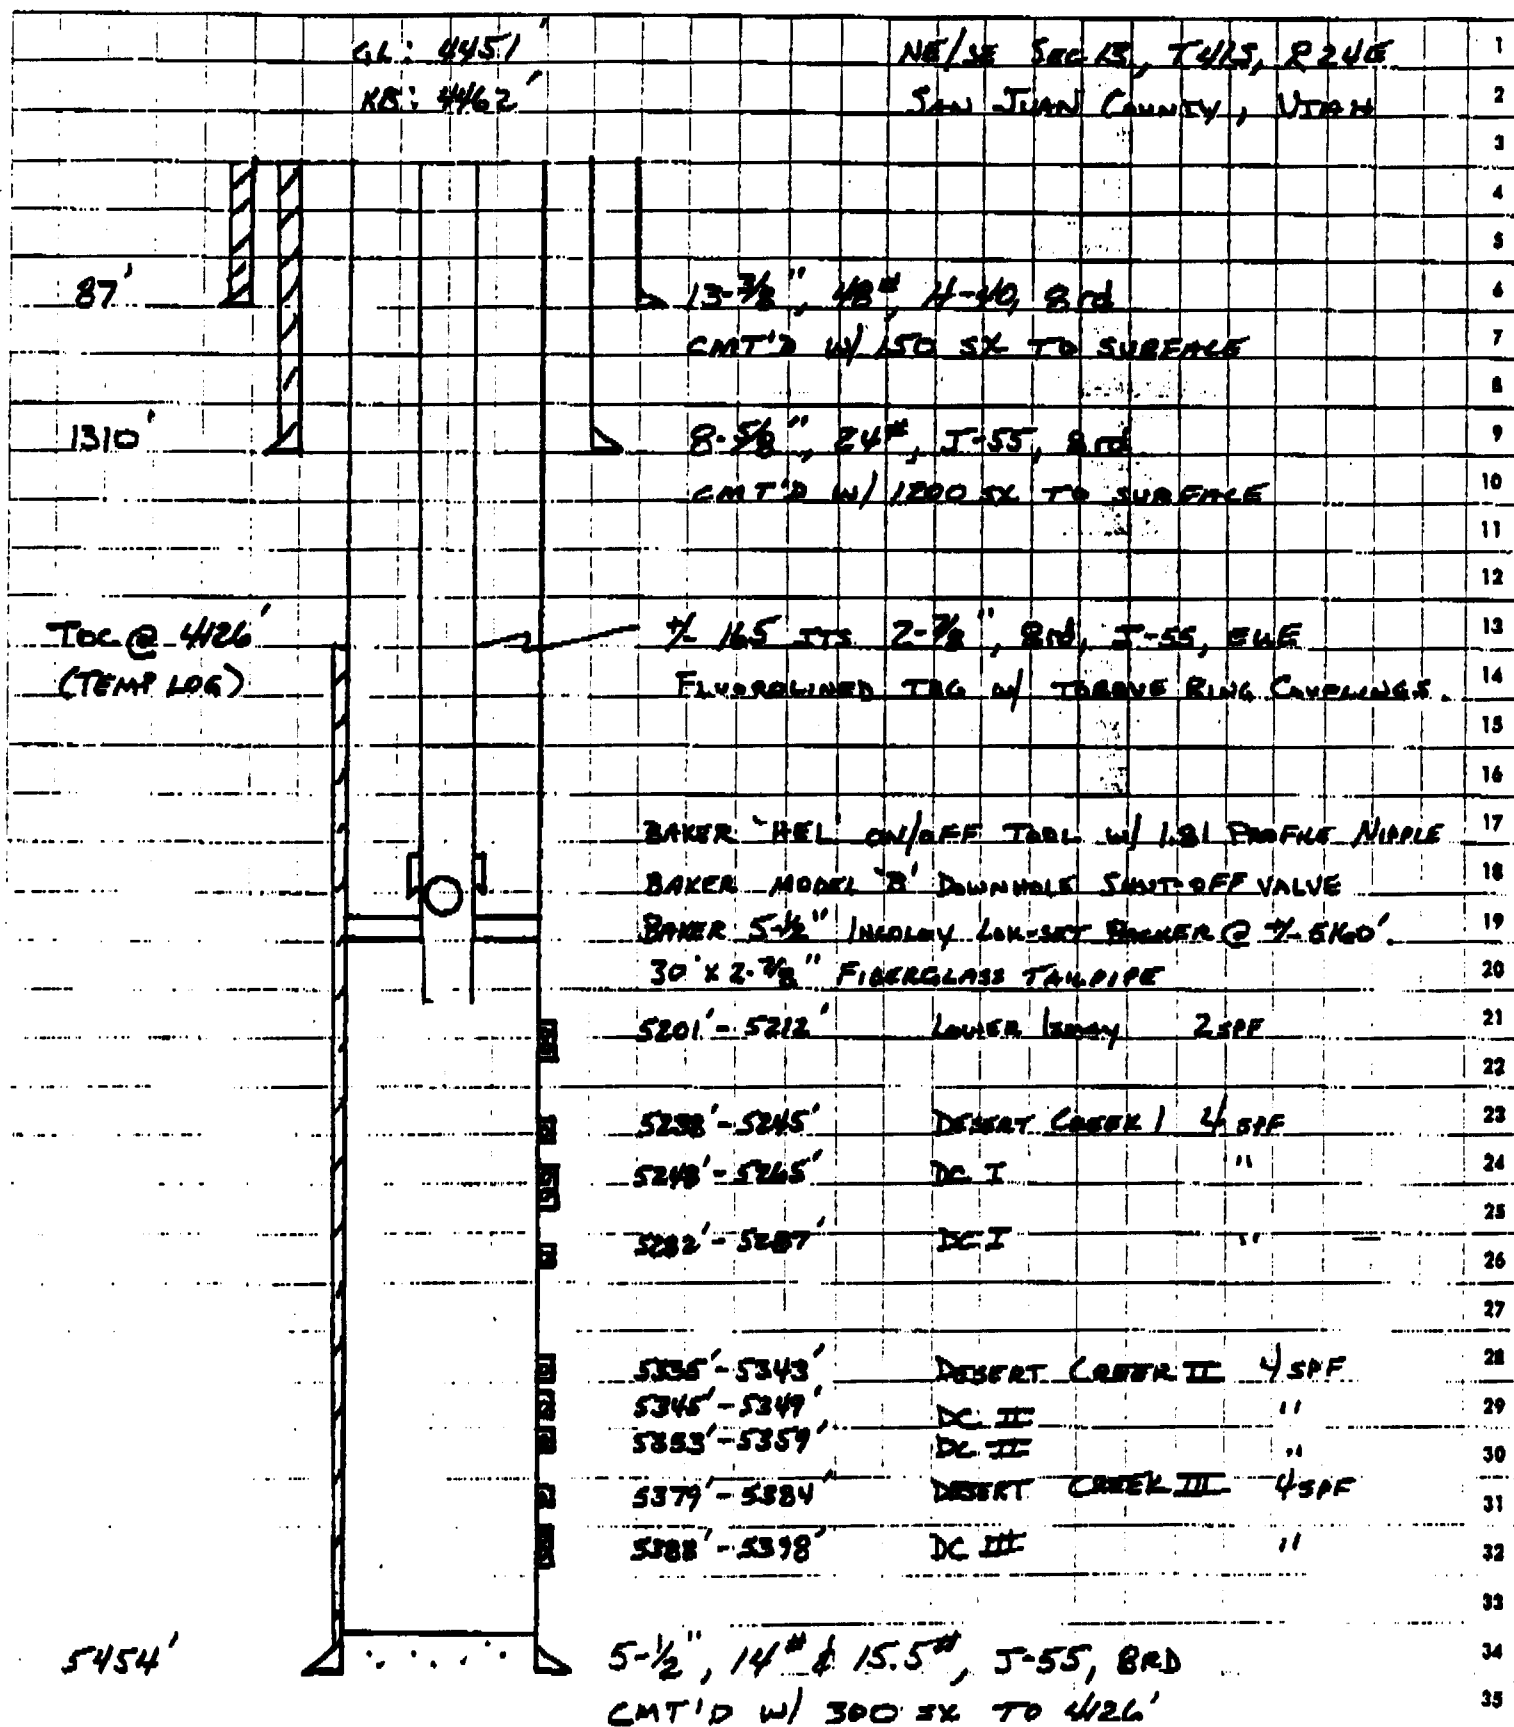 GL: 4451'
NE/SE SEC 13, T41S, R24E
KB: 4462'
SAN JUAN COUNTY, UTAH
87'
13-3/8", 48#, H-40, 8rd
CMT'D W/ 150 SX TO SURFACE
1310'
8-5/8", 24#, J-55, 8rd
CMT'D W/ 1200 SX TO SURFACE
TOC @ 4126'
+/- 165 JTS 2-7/8", 8rd, J-55, EUE
(TEMP LOG)
FLUOROLINED TBG W/ TORQUE RING COUPLINGS.
BAKER 'HEL' ON/OFF TOOL W/ 1.81 PROFILE NIPPLE
BAKER MODEL 'B' DOWNHOLE SHUT-OFF VALVE
BAKER 5-1/2" INCOLOY LOK-SET PACKER @ +/- 5160'.
30' X 2-7/8" FIBERGLASS TAILPIPE
5201'-5212' LOWER ISMAY 2 SPF
5238'-5245' DESERT CREEK I 4 SPF
5248'-5265' DC I "
5282'-5287' DC I "
5335'-5343' DESERT CREEK II 4 SPF
5345'-5349' DC II "
5353'-5359' DC II "
5379'-5384' DESERT CREEK III 4 SPF
5388'-5398' DC III "
5454'
5-1/2", 14# & 15.5#, J-55, 8RD
CMT'D W/ 300 SX TO 4126'
1
2
3
4
5
6
7
8
9
10
11
12
13
14
15
16
17
18
19
20
21
22
23
24
25
26
27
28
29
30
31
32
33
34
35